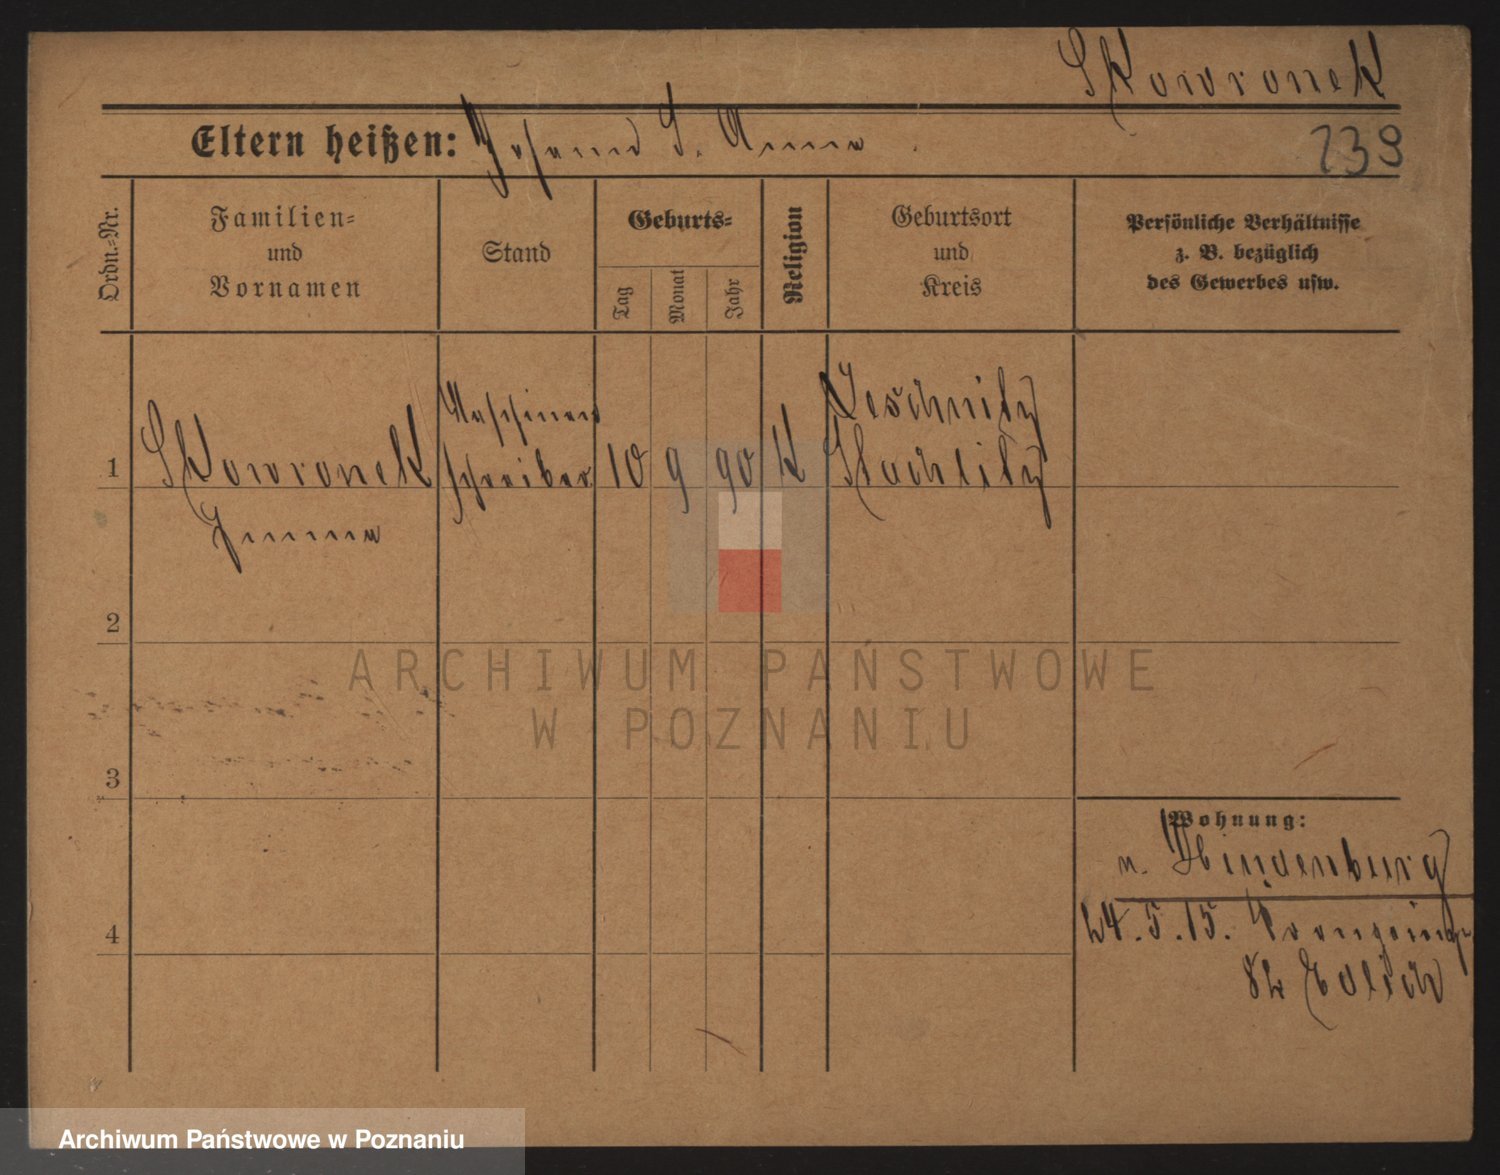 Skowronek
Eltern heißen: Johann S. Anna
238
Ordn.=Nr.
Familien=
und
Vornamen
Stand
Geburts=
Tag
Monat
Jahr
Religion
Geburtsort
und
Kreis
Persönliche Verhältnisse
z. B. bezüglich
des Gewerbes usw.
Maschinen
Leschnitz
1 Skowronek schreiber 10 9 90 K
2
3
4
Wohnung:
n. Hindenburg
24.5.15.
82
ARCHIWUM PAŃSTWOWE
W POZNANIU
Archiwum Państwowe w Poznaniu